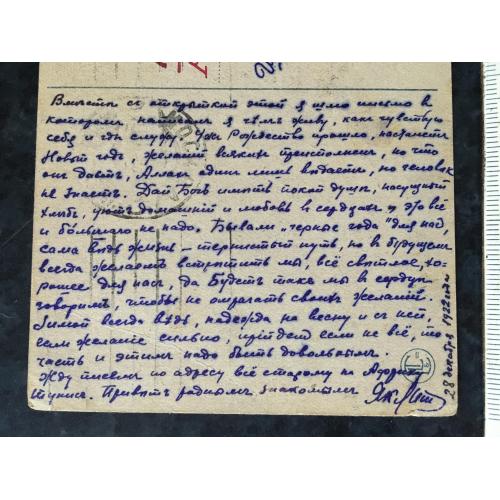 Вместе съ открыткой этой я шлю письмо въ
которомъ написалъ я чѣмъ живу, какъ чувствую
себя и гдѣ служу. Ужъ Рождество прошло, настанетъ
Новый годъ, желаній всякихъ преисполненъ, но что
онъ дастъ, Аллахъ одинъ лишь вѣдаетъ, но человѣкъ
не знаетъ. Дай Богъ имѣть покой души, насущный
хлѣбъ, уютъ домашній и любовь въ сердцахъ и это всё
и большаго не надо. Бывали "черные года" для насъ,
сама вѣдь жизнь - тернистый путь, но въ будущемъ
всегда желаемъ встрѣтить мы, всё свѣтлое, хо-
рошее для насъ, да будетъ такъ мы въ сердцѣ
говоримъ, чтобы не омрачать своихъ желаній.
Зимой всегда вѣдь, надежда на весну и съ ней,
если желаніе сильно, придетъ если не всё, то
часть и этимъ надо быть довольнымъ.
Жду писемъ по адресу всё старому въ Африку
Тунисъ. Привѣтъ роднымъ знакомымъ
28 декабря 1922 года